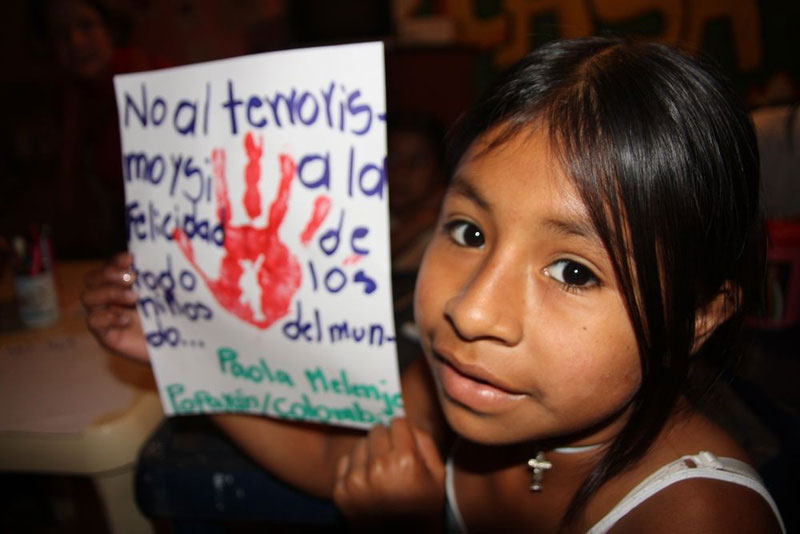 No al terroris-
mo y si a la
Felicidad de
todo los
niños del mun-
do...
Paola Melenje
Popayán/Colombia